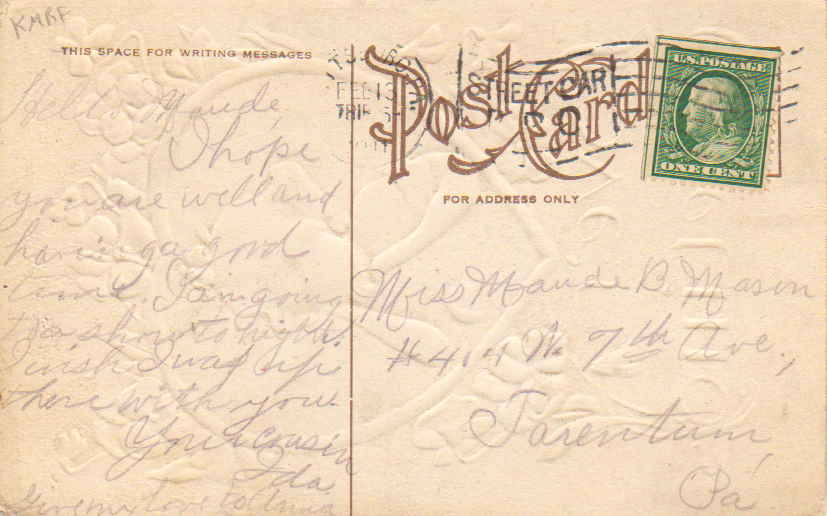 KMRF
THIS SPACE FOR WRITING MESSAGES
Post Card
FEB 13
STREET CAR
U.S. POSTAGE
ONE CENT
FOR ADDRESS ONLY
Hello Maude,
I hope
you are well and
having a good
time. I am going
to a show to night
wish I was up
there with you.
Your cousin
Ida
Give my love to
Miss Maude B. Mason
#414 W. 7th Ave.,
Tarentum,
Pa